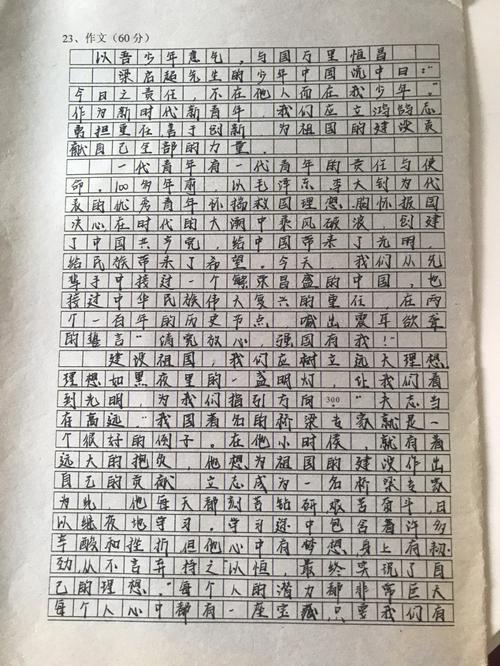 23、作文（60分）
以吾少年意气，与国万里恒昌
梁启超先生的少年中国说中曰：“
今日之责任，不在他人而在我少年。”
作为新时代新青年，我们应立鸿鹄志
勇担重任善于创新，为祖国的建设贡
献自己全部的力量。
一代青年有一代青年的责任与使
命。100多年前，以毛泽东、李大钊为代
表的优秀青年怀揣救国理想，胸怀报国
决心在时代的大潮中乘风破浪，创建
了中国共产党，给中国带来了光明，
给民族带来了希望。今天，我们从先
辈手中接过一个繁荣昌盛的中国，也
接过中华民族伟大复兴的重任，在两
个一百年的历史节点，喊出震耳欲聋
的誓言“请党放心，强国有我！”
建设祖国，我们应树立远大理想。
理想如黑夜里的一盏明灯，让我们看
到光明，为我们指引方向。300“志当
存高远。”我国著名的桥梁专家就是一
个很好的例子。在他小时候，就有着
远大的抱负，他想为祖国的建设作出
自己的贡献，立志成为一名桥梁专家
为此，他每天都刻苦钻研艰苦奋斗，日
以继夜地学习。学习途中包含着许多
辛酸和挫折但他心中有梦想，身上有韧
劲从不言弃持之以恒，最终实现了自
己的理想。“每个人的潜力都非常巨大
每个人心中都有一座宝藏只要我们有